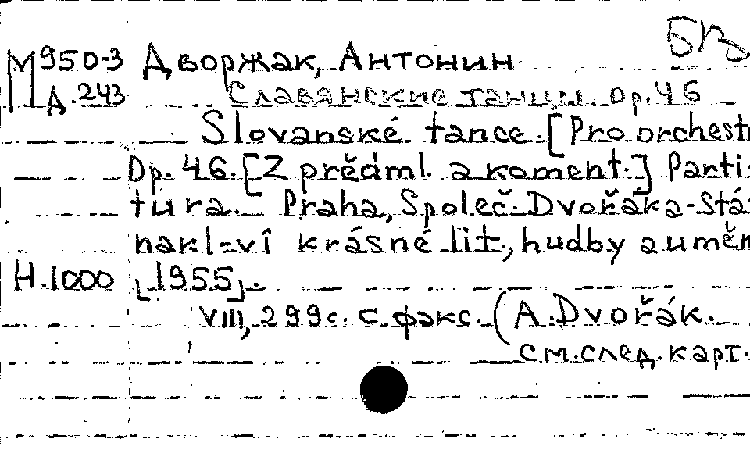 М950-3 Дворжак, Антонин Б/з
Д.243 Славянские танцы. Op.46
Slovanské tance. [Pro orchestr
Op. 46. [Z předml. a koment.] Parti-
tura. Praha, Společ. Dvořáka-Stá
nakl-ví krásné lit., hudby a uměn
Н.1000 [1955].
VIII, 299с. с факс. (A. Dvořák.
см. след. карт.